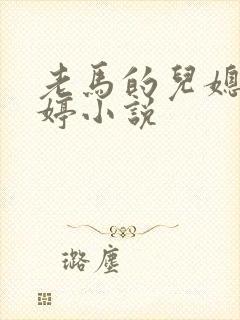 老馬的兒媳
婷小說
璐塵